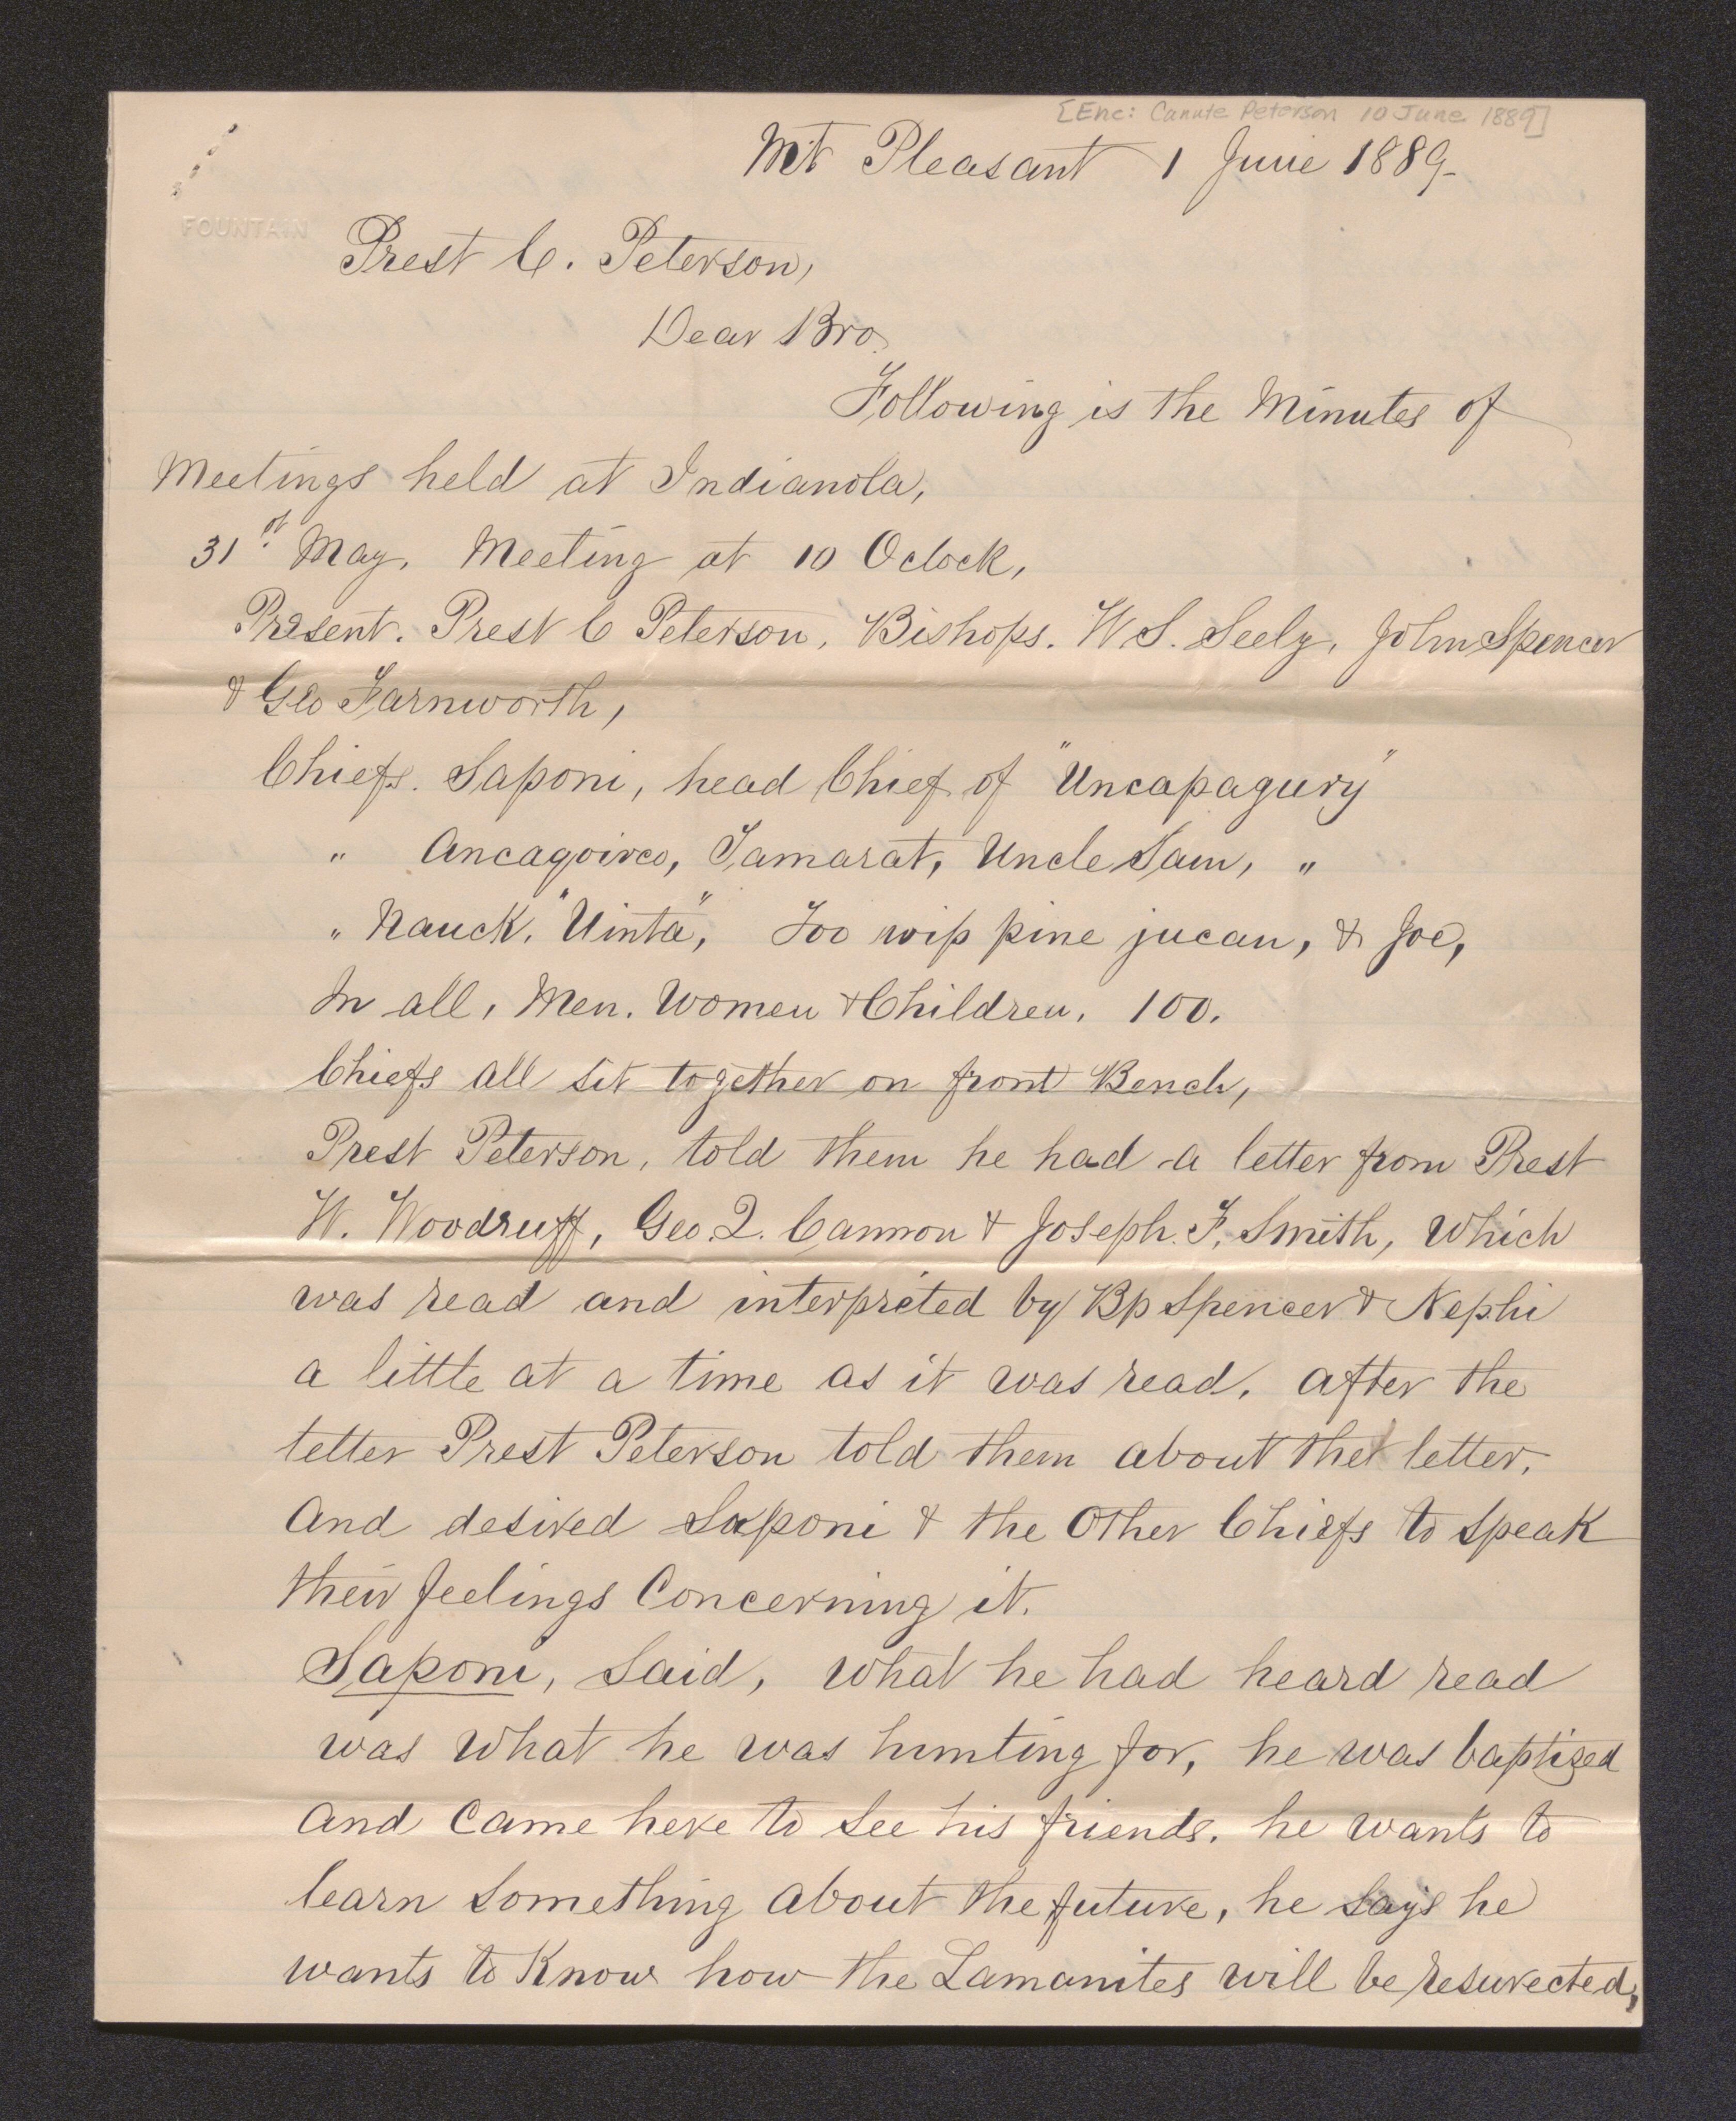 [Enc: Canute Peterson 10 June 1889]
Mt Pleasant 1 June 1889-
FOUNTAIN
Prest C. Peterson,
Dear Bro.
Following is the Minutes of
Meetings held at Indianola,
31st May. Meeting at 10 Oclock,
Present. Prest C Peterson, Bishops. W.S. Seely, John Spencer
& Geo Farnworth,
Chiefs. Saponi, head Chief of "Uncapagury"
" Ancagoires, Tamarat, Uncle Sam, "
" Nauck. "Uinta", Too wip pine jucan, & Joe,
In all, Men. Women & Children. 100.
Chiefs all sit together on front Bench,
Prest Peterson, told them he had a letter from Prest
W. Woodruff, Geo. Q. Cannon & Joseph. F. Smith, which
was read and interpreted by Bp Spencer & Nephi
a little at a time as it was read. after the
letter Prest Peterson told them about the letter.
and desired Saponi & the other Chiefs to speak
their feelings Concerning it.
Saponi, said, what he had heard read
was what he was hunting for, he was baptized
and Came here to see his friends. he wants to
learn something about the future, he says he
wants to Know how the Lamanites will be resurected,